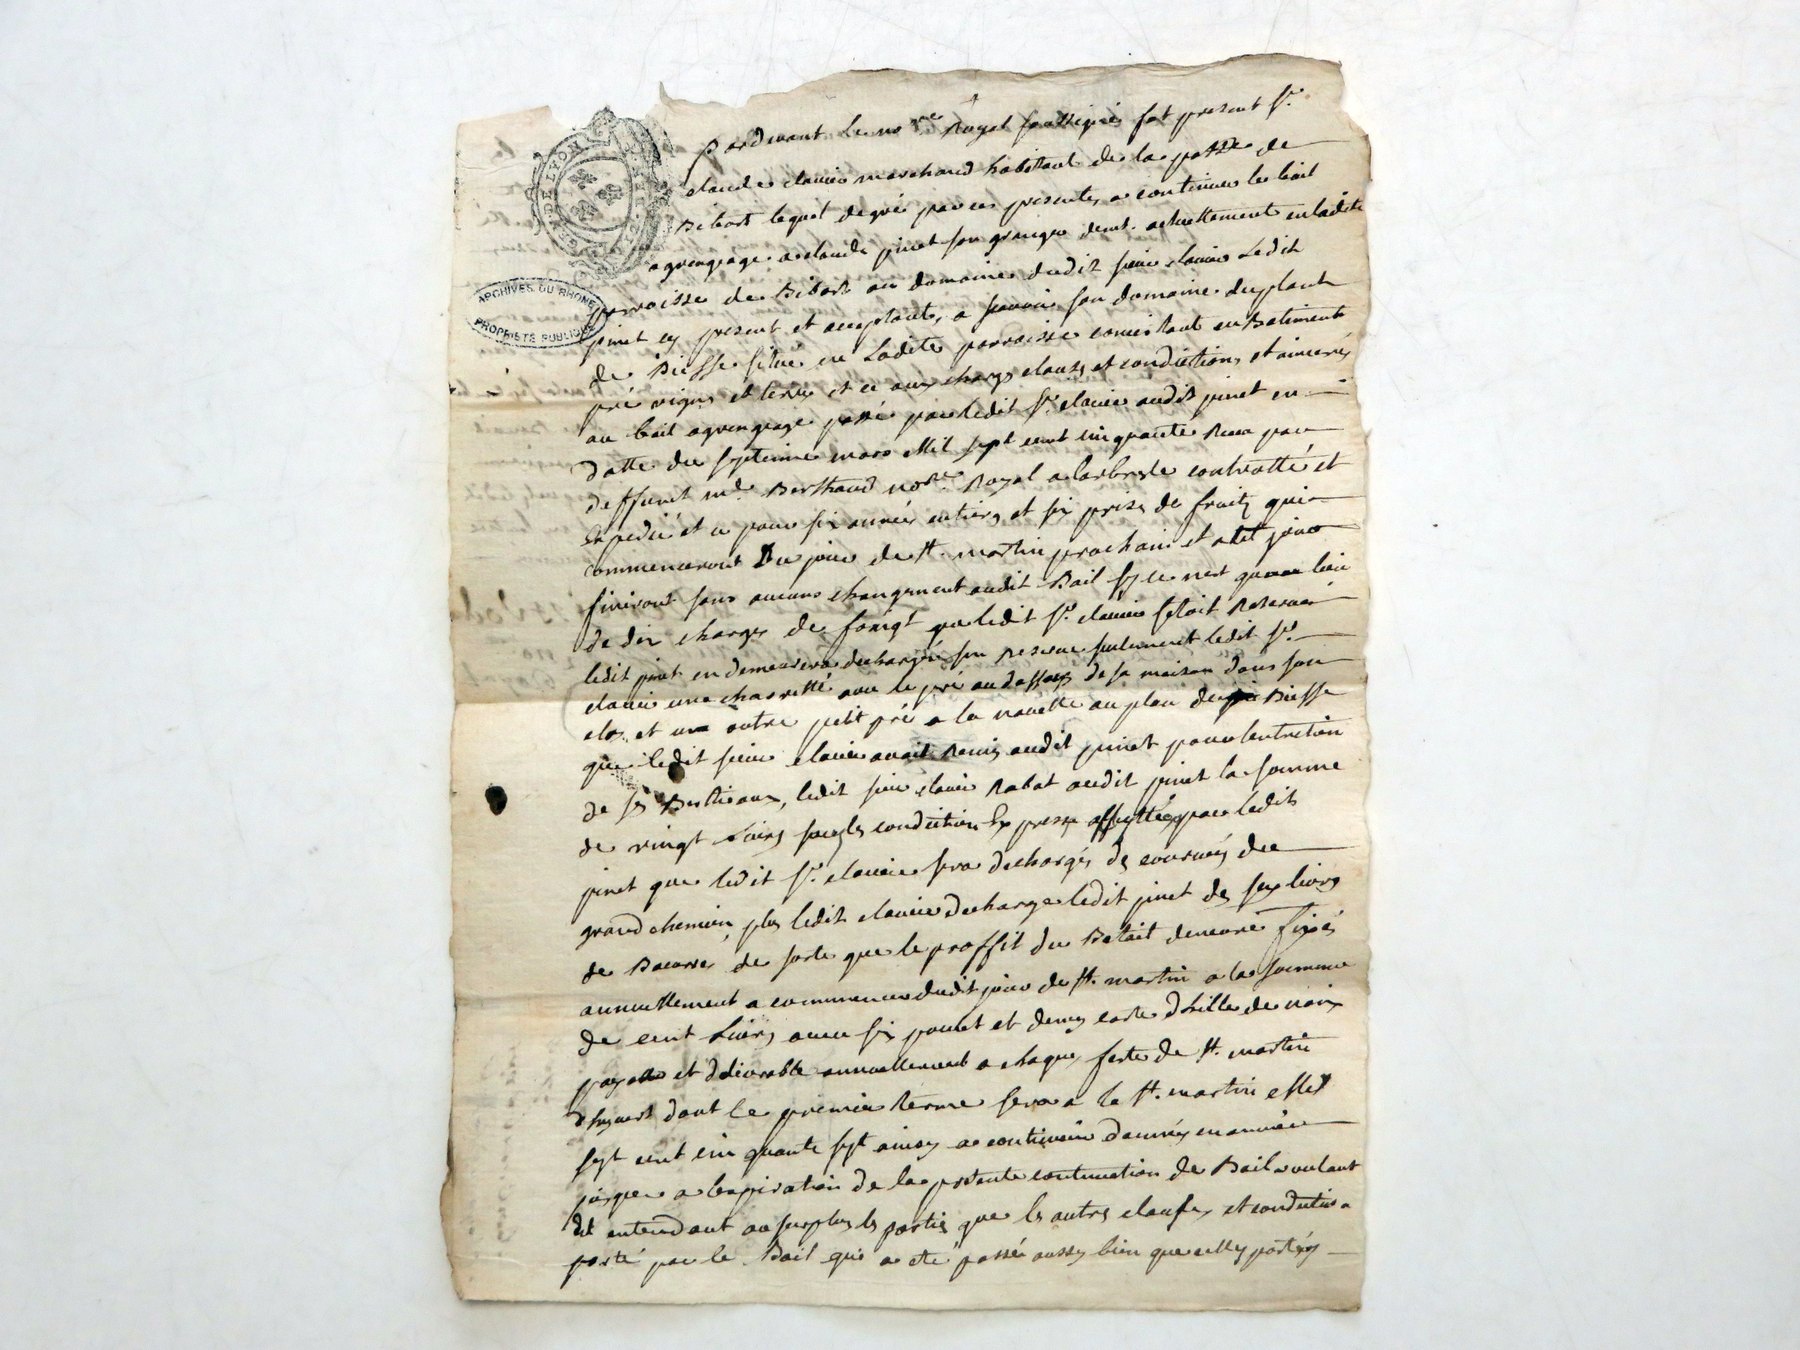 DE LYON
ARCHIVES DU RHONE
PROPRIÉTÉ PUBLIQUE
pardevant le no.re Royal soussigné fut present Sr.
claude clavier marchand habitant de la de
Bibost lequel de gré par ces presentes a continué le bail
agrengeage a claude pinet son granger demt. actuellement en ladite
parroisse de Bibost au domaine dudit sieur clavier ledit
pinet cy present et acceptant, a scavoir son domaine du plant
de Biesse situé en Ladite parroisse consistant en Batiments
pré vignes et terres et ce aux charges clauses et condiction et
au bail agrengeage passé par ledit Sr. clavier audit pinet en
datte du septieme mars Mil sept cent cinquante par
deffunct me. Berthaud nore. Royal a larbresle controllé et
Expedié et ce pour six années entieres et six prises de fruits qui
commenceront Du jour de St. martin prochain et a tel jour
finiront sans aucuns changement audit Bail sy ce nest que au lieu
de dix charges de que ledit Sr. clavier setoit Reservé
ledit pinet en demeurera dechargé seulement ledit Sr.
clavier une avec le pré au dessous de sa maison dans son
clos et un autre petit pré a la au plan de Biesse
que ledit sieur clavier avait Remis audit pinet pour lentretien
de ses Bestieaux, ledit sieur clavier Rabat audit pinet la somme
de vingt Livres sous les condiction Expresse par ledit
pinet que ledit Sr. clavier sera dechargés des courvées du
grand chemin, plus ledit clavier decharge ledit pinet des six livres
de Beurre, de sorte que le proffit du Betail demeure fixés
annuellement a commencer dudit jour de St. martin a la somme
de cent Livres avec six poulet et demy dhuille de noix
payable et delivrable annuellement a chaque feste de St. martin
dhyvert dont le premier terme sera a la St. martin Mil
sept cent cinquante sept ainsy a continuer dannées en année
jusques a lexpiration de la presente continuation de Bail voulant
et entendant au surplus les parties que les autres clauses et condiction
porté par le Bail qui a eté passé aussy bien que celles portées